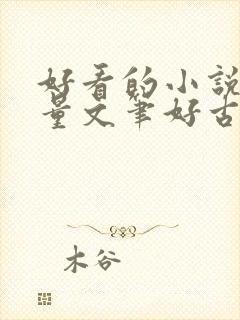 好看的小說
量文筆好古
木谷